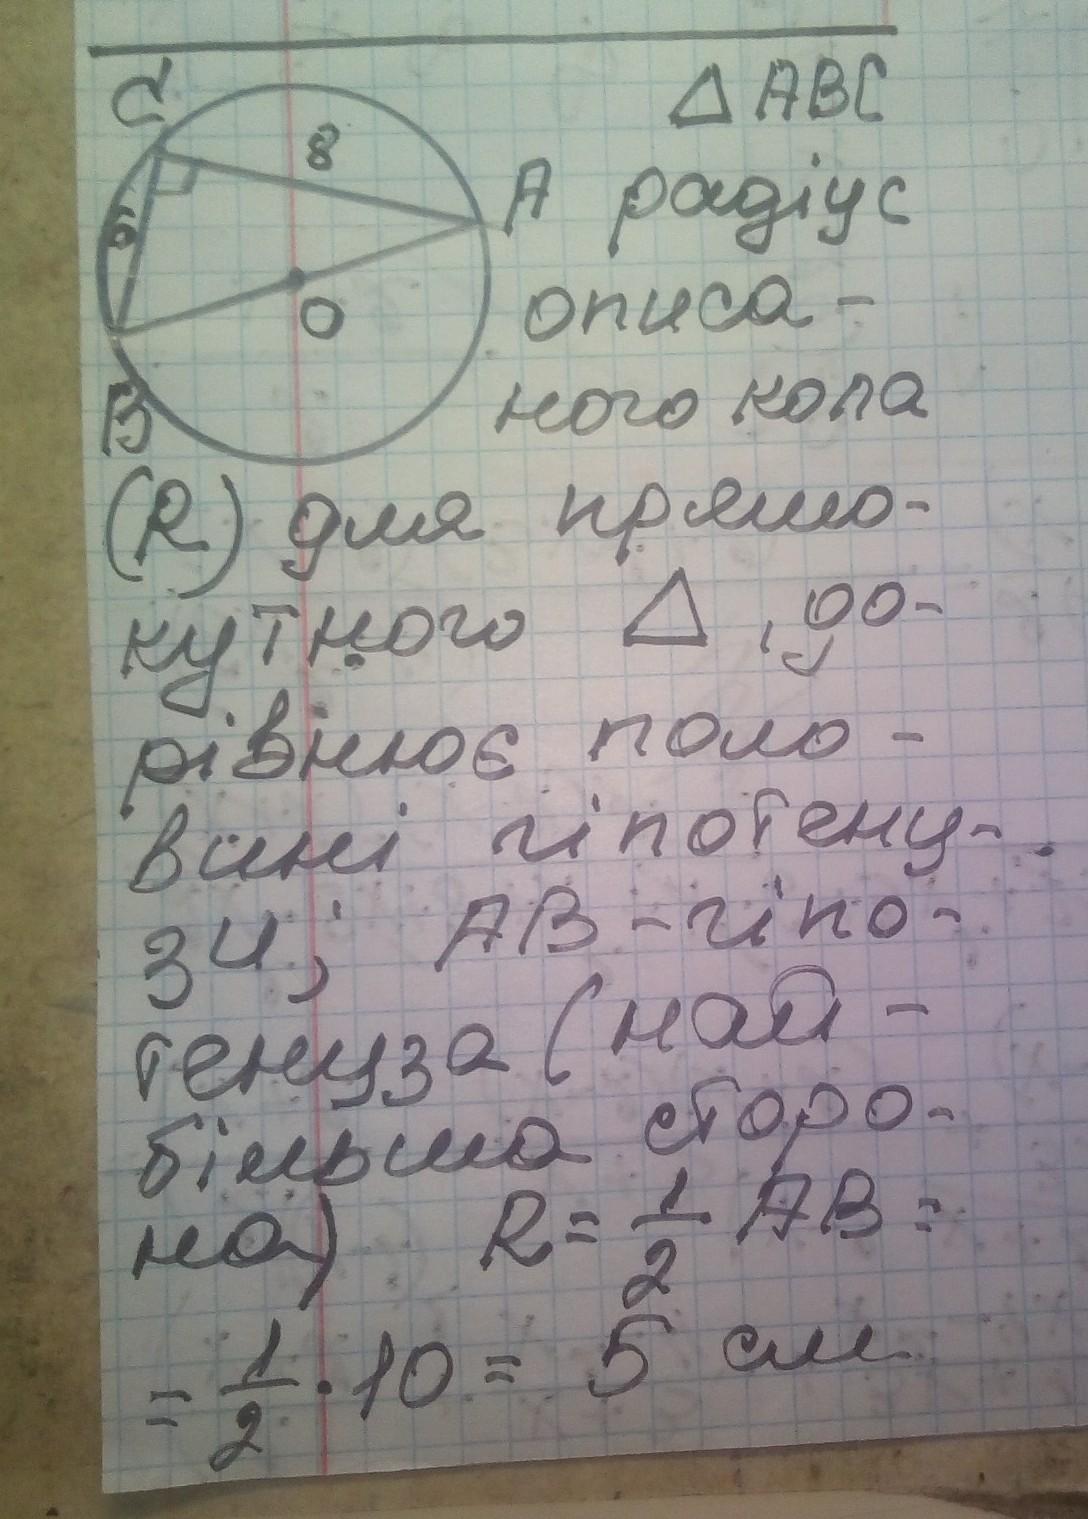 C
8
△ ABC
A
радіус
6
O
описа-
B
ного кола
(R) для прямо-
кутного △, до-
рівнює поло-
вині гіпотену-
зи; AB - гіпо-
тенуза (най-
більша сторо-
на) R = 1/2 AB =
= 1/2 · 10 = 5 см